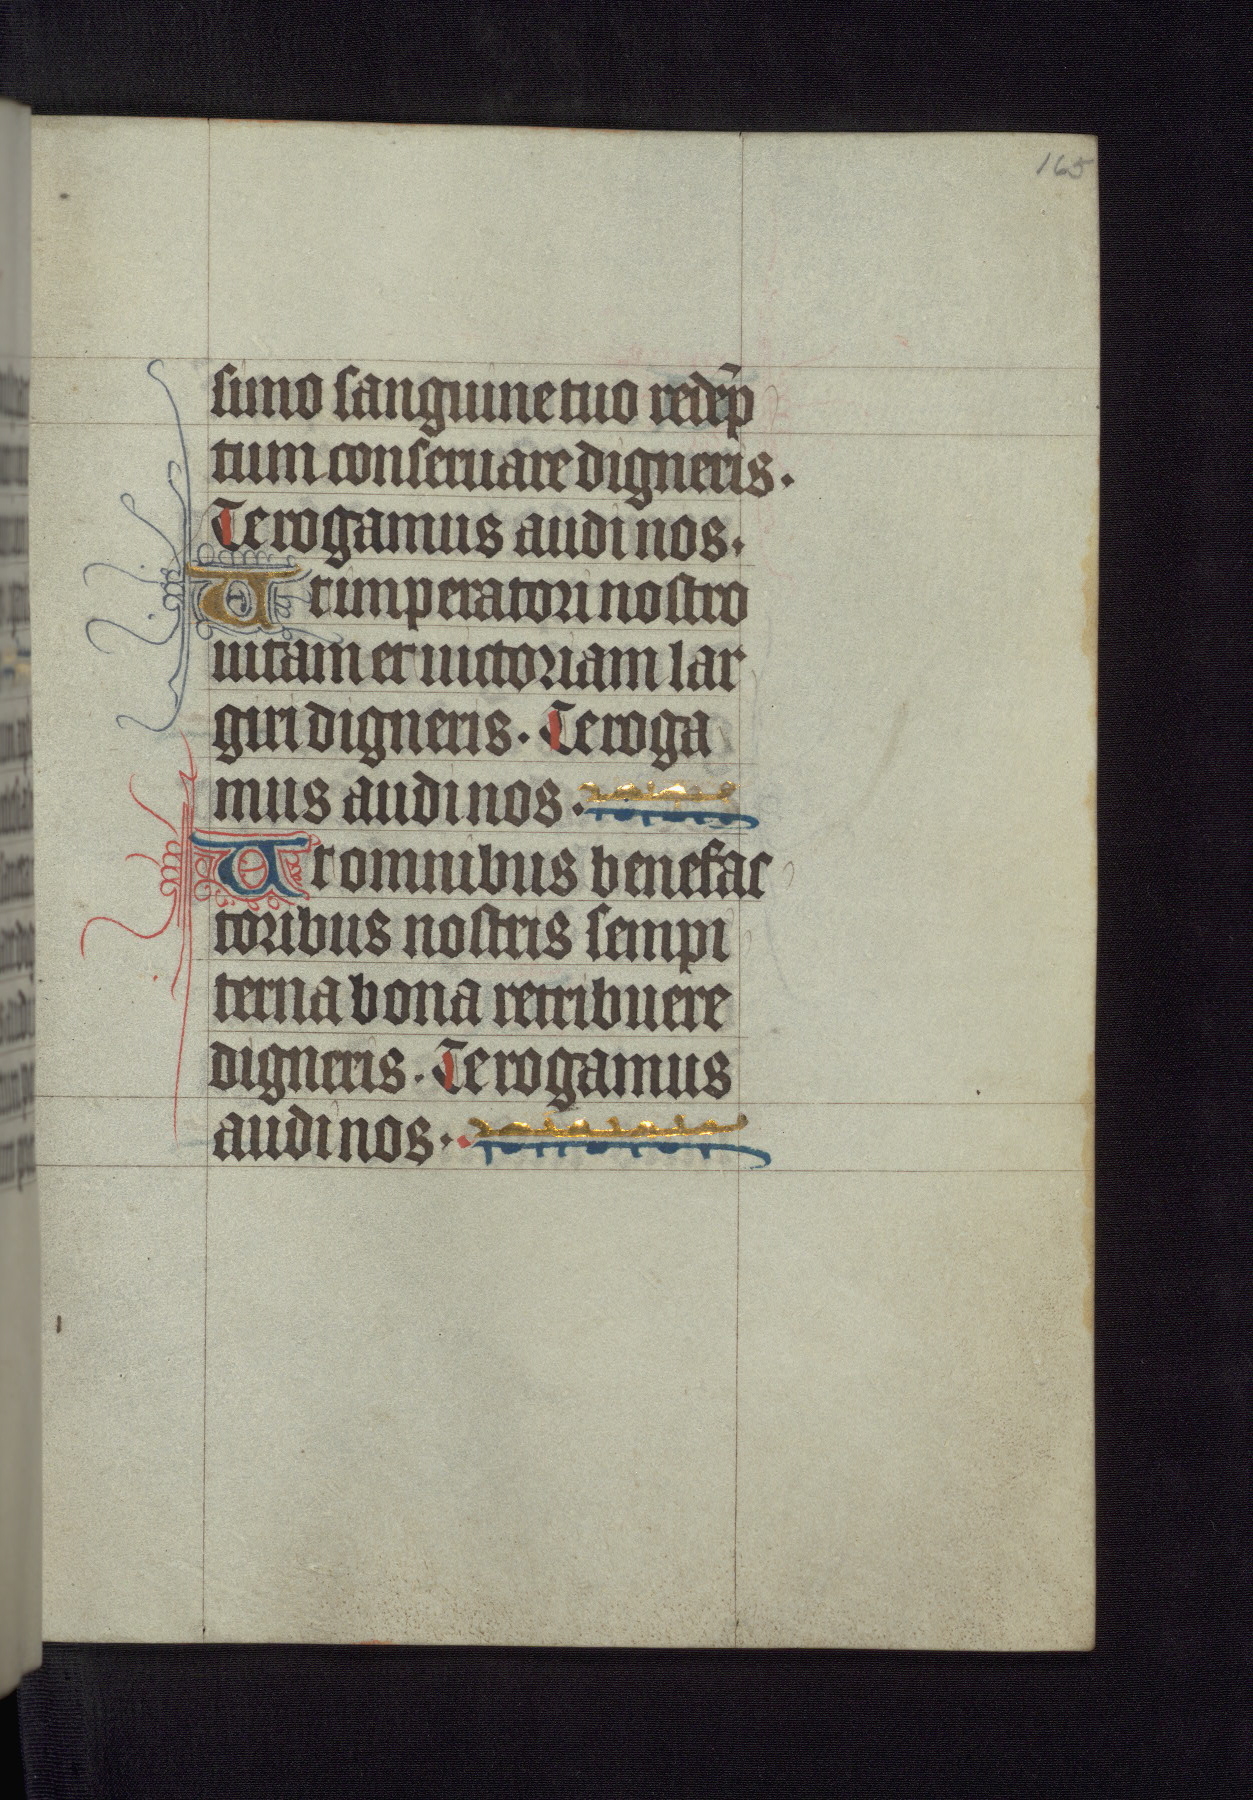 165
simo sanguine tuo redēp
tum conseruare digneris.
Te rogamus audi nos.
Ut imperatori nostro
uitam et uictoriam lar
giri digneris. Te roga
mus audi nos.
Ut omnibus benefac
toribus nostris sempi
terna bona retribuere
digneris. Te rogamus
audi nos.